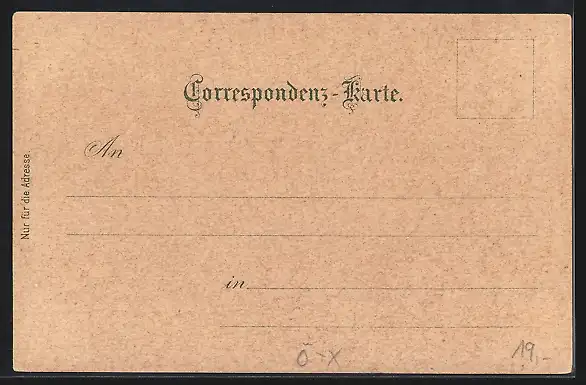 Correspondenz-Karte.
An
Nur für die Adresse.
in
Ö-X
19,-